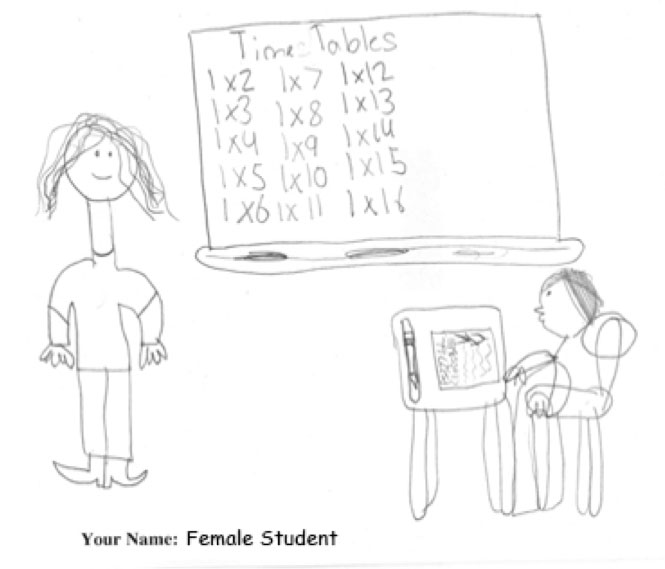 Times Tables
1x2 1x7 1x12
1x3 1x8 1x13
1x4 1x9 1x14
1x5 1x10 1x15
1x6 1x11 1x16
Your Name: Female Student